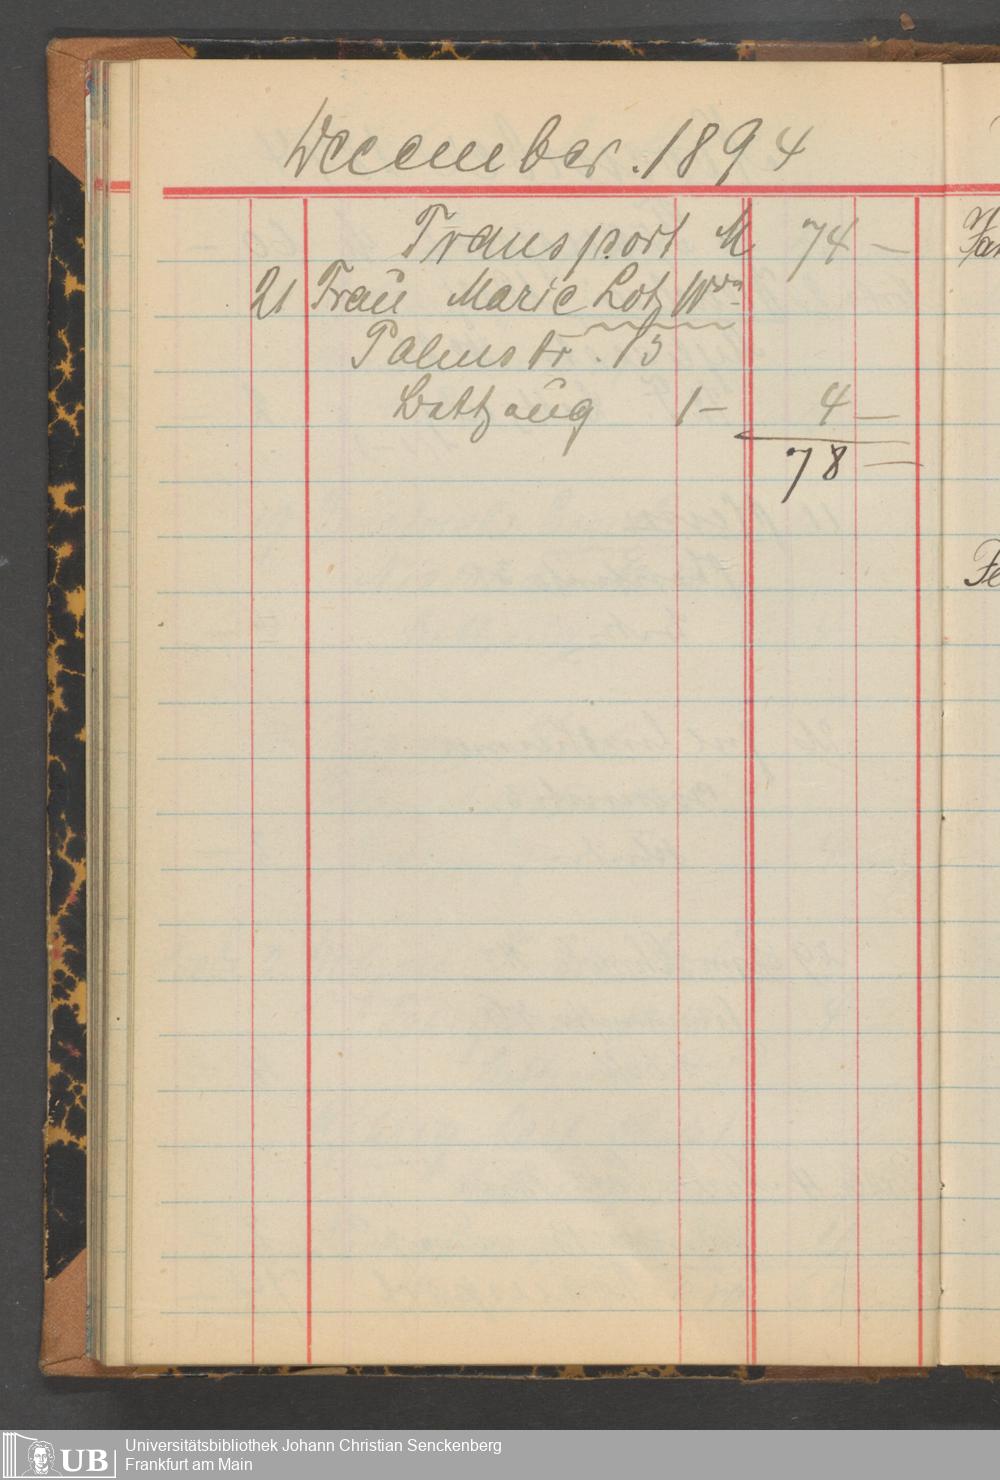 December. 1894
Transport M 74 —
21 Frau Marie Lotz Wwe
Palmstr. 13
1 — 4 —
78 —
Universitätsbibliothek Johann Christian Senckenberg
Frankfurt am Main
UB